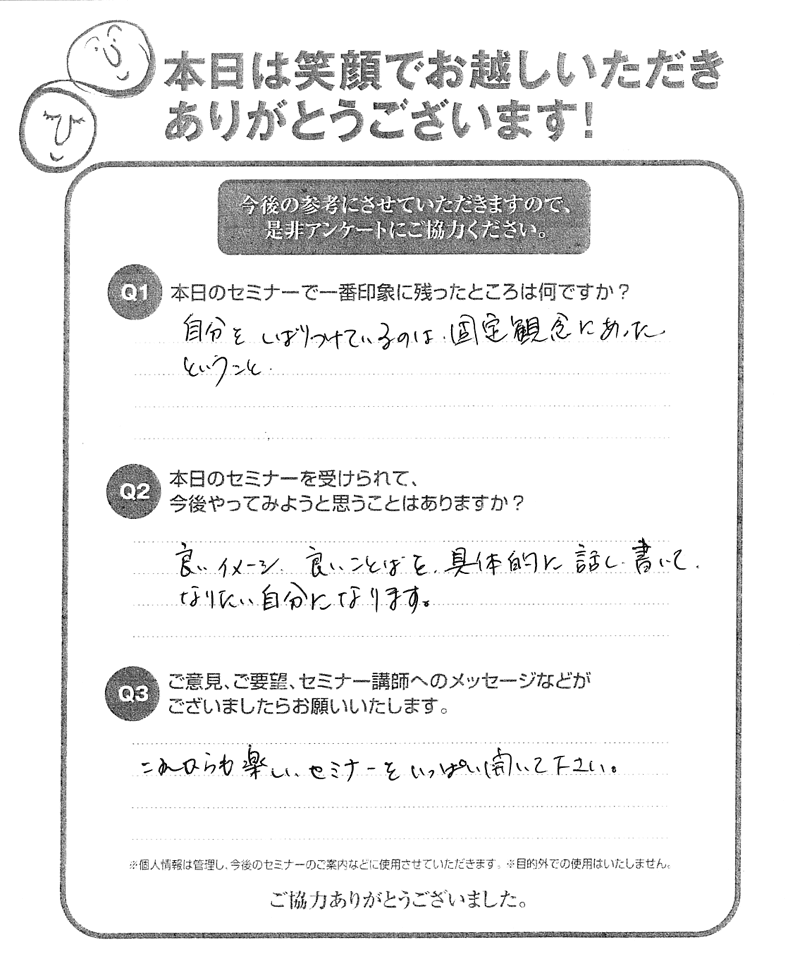 本日は笑顔でお越しいただき
ありがとうございます!
今後の参考にさせていただきますので、
是非アンケートにご協力ください。
Q1 本日のセミナーで一番印象に残ったところは何ですか？
自分をしばりつけているのは、固定観念にあった
ということ.
Q2 本日のセミナーを受けられて、
今後やってみようと思うことはありますか？
良いイメージ、良いことばを、具体的に話し、書いて、
なりたい自分になります。
Q3 ご意見、ご要望、セミナー講師へのメッセージなどが
ございましたらお願いいたします。
これからも楽しいセミナーをいっぱい開いて下さい。
※個人情報は管理し、今後のセミナーのご案内などに使用させていただきます。※目的外での使用はいたしません。
ご協力ありがとうございました。